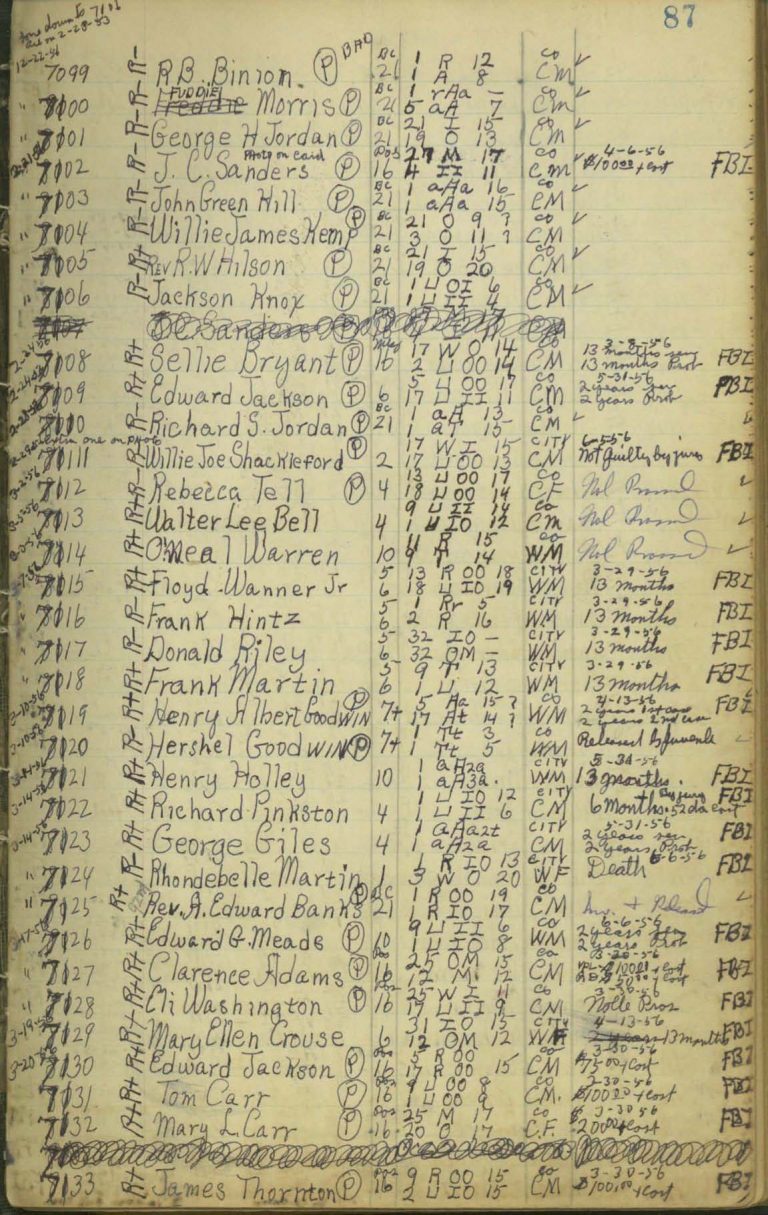 87
12-22-56
7099 R- R.B. Binion (P) BAD BC 21 1 R 12 / 1 A 8 CO CM ✓
" 7100 R- FUDDIE Morris (P) BC 21 1 rAa - / 5 aA 7 CO CM ✓
" 7101 R- George H Jordan (P) BC 21 21 I 15 / 19 O 13 CO CM ✓
7102 R- J.C. Sanders Photo on Card (P) Pos 16 27 M 17 / 4 II 11 CO CM 4-6-56 $100.00 + Cost FBI
" 7103 R- John Green Hill (P) BC 21 1 aAa 16 / 1 aAa 15 CO CM ✓
" 7104 R- Willie James Kemp (P) BC 21 21 O 9 ? / 3 O 11 ? CO CM ✓
" 7105 R- Rev R.W Hilson (P) BC 21 21 I 15 / 19 O 20 CO CM ✓
" 7106 R- Jackson Knox (P) BC 21 1 U OI 6 / 1 U II 4 CO CM ✓
2-24-56 7108 R+ Sellie Bryant (P) 16 17 W O 14 / 2 U OO 14 CO CM 3-8-56 13 months 13 months Prob FBI
7109 R+ Edward Jackson (P) 6 5 U OO 17 / 17 U II 11 CO CM 5-31-56 2 years 2 years Prob FBI
7110 R- Richard S. Jordan (P) BC 21 1 aA 13 / 1 aT 15 CO CM ✓
7111 R- Willie Joe Shackleford (P) 2 17 W I 15 / 17 U OO 13 CITY CM Not guilty by jury FBI
3-2-56 7112 R+ Rebecca Tell (P) 4 13 U OO 17 / 18 U OO 14 CO CF Nol Prossed ✓
7113 R+ Walter Lee Bell 4 9 U II 14 / 1 U IO 12 CO CM Nol Prossed ✓
7114 R+ O'Neal Warren 10 11 R 15 / 9 T 14 CO WM Nol Prossed ✓
7115 R+ Floyd Wanner Jr 5 6 13 R OO 18 / 18 U IO 19 CITY WM 3-29-56 13 months FBI
" 7116 R+ Frank Hintz 5 6 1 Rr 5 / 2 R 16 CITY WM 3-29-56 13 months FBI
" 7117 R- Donald Riley 5 6 32 IO - / 32 OM - CITY WM 3-29-56 13 months FBI
" 7118 R+ Frank Martin 5 6 9 T 13 / 1 U 12 CITY WM 3-29-56 13 months FBI
3-10-56 7119 R+ Henry Albert Goodwin (P) 7+ 5 Aa 15 ? / 17 At 14 ? CO WM 4-13-56 2 years 1st case 2 years 2nd case FBI
3-10-56 7120 R- Hershel Goodwin (P) 7+ 1 Tt 3 / 1 Tt 5 CO WM Released by Juvenile
7121 R+ Henry Holley 10 1 aA2a / 1 aA3a. CITY WM 13 months. FBI
3-14-56 7122 R+ Richard Pinkston 4 1 U IO 12 / 1 U II 6 CITY CM 6 Months FBI
3-14-56 7123 R+ George Giles 4 1 aAa2t / 1 aA2a CITY CM 5-31-56 2 years 2 years Prob FBI
" 7124 R- Rhondebelle Martin 1 1 R IO 13 / 3 W O 20 CITY WF Death FBI
" 7125 R+ Rev. A. Edward Banks (P) BC 21 1 R OO 19 / 1 R IO 17 CO CM ✓
7126 R+ Edward G. Meads (P) 10 9 U II 6 / 1 U IO 8 CO WM 6-6-56 2 years 2 years Prob FBI
" 7127 R+ Clarence Adams (P) 16 25 OM 15 / 12 M. 12 CO CM FBI
" 7128 R+ Eli Washington (P) 16 25 W I 11 / 17 U II 9 CO CM 3-30-56 Nolle Pros FBI
3-19-56 7129 R+ Mary Ellen Crouse 6 31 IO 15 / 12 OM 12 CITY WF 4-13-56 13 months FBI
3-20-56 7130 R+ Edward Jackson (P) 16 5 R OO / 17 R OO 15 CO CM 3-30-56 $75.00 + Cost FBI
7131 R+ Tom Carr (P) 16 9 U OO 8 / 1 U OO 9 CO CM. 3-30-56 $100.00 + Cost FBI
" 7132 R+ Mary L. Carr (P) 16 25 M 17 / 20 O 17 CO C.F. 3-30-56 200.00 + Cost FBI
7133 R+ James Thornton (P) 16 9 R OO 15 / 2 U IO 15 CO CM 3-30-56 $100.00 + Cost FBI